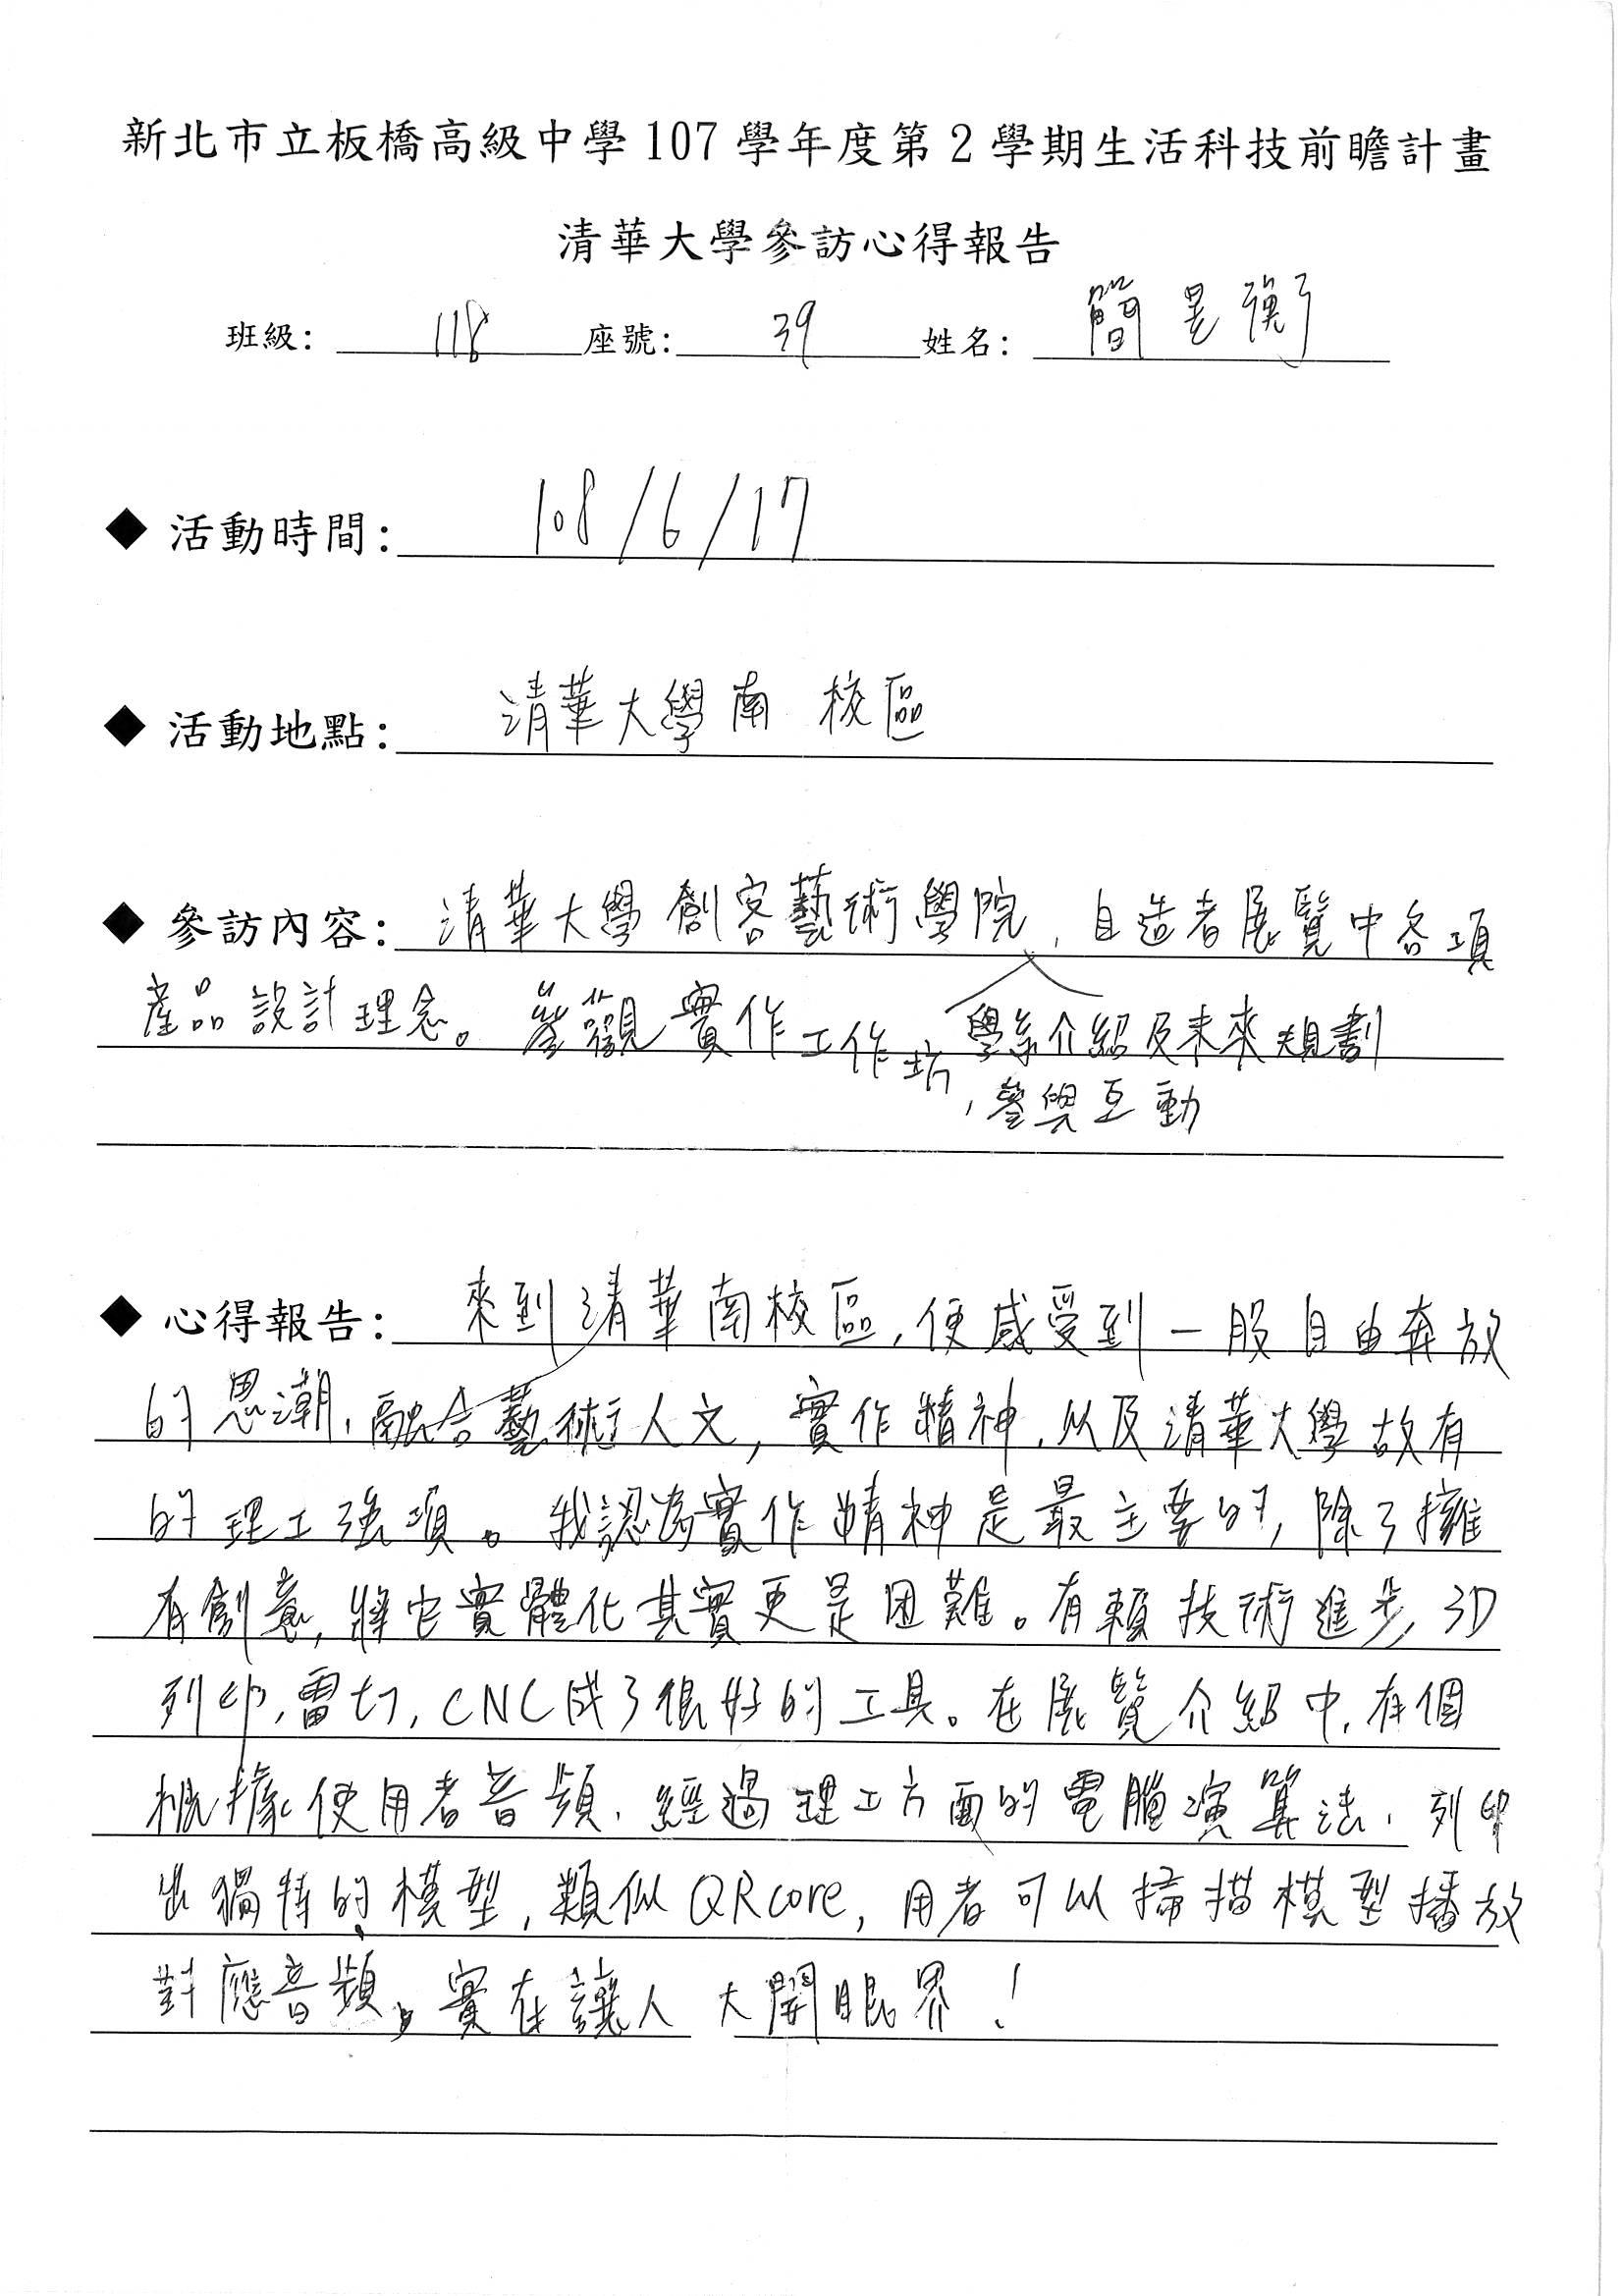 新北市立板橋高級中學107學年度第2學期生活科技前瞻計畫
清華大學參訪心得報告
班級: 118 座號: 39 姓名: 簡昱衡
◆ 活動時間: 108/6/17
◆ 活動地點: 清華大學南校區
◆ 參訪內容: 清華大學創客藝術學院,自造者展覽中各項
產品設計理念。參觀實作工作坊 學系介紹及未來規劃
,參與互動
◆ 心得報告: 來到清華南校區,便感受到一股自由奔放
的思潮,融合藝術人文,實作精神,以及清華大學故有
的理工強項。我認為實作精神是最主要的,除了擁
有創意,將它實體化其實更是困難。有賴技術進步,3D
列印,雷切,CNC成了很好的工具。在展覽介紹中,有個
根據使用者音頻,經過理工方面的電腦演算法,列印
出獨特的模型,類似QRcore,用者可以掃描模型播放
對應音頻,實在讓人大開眼界!